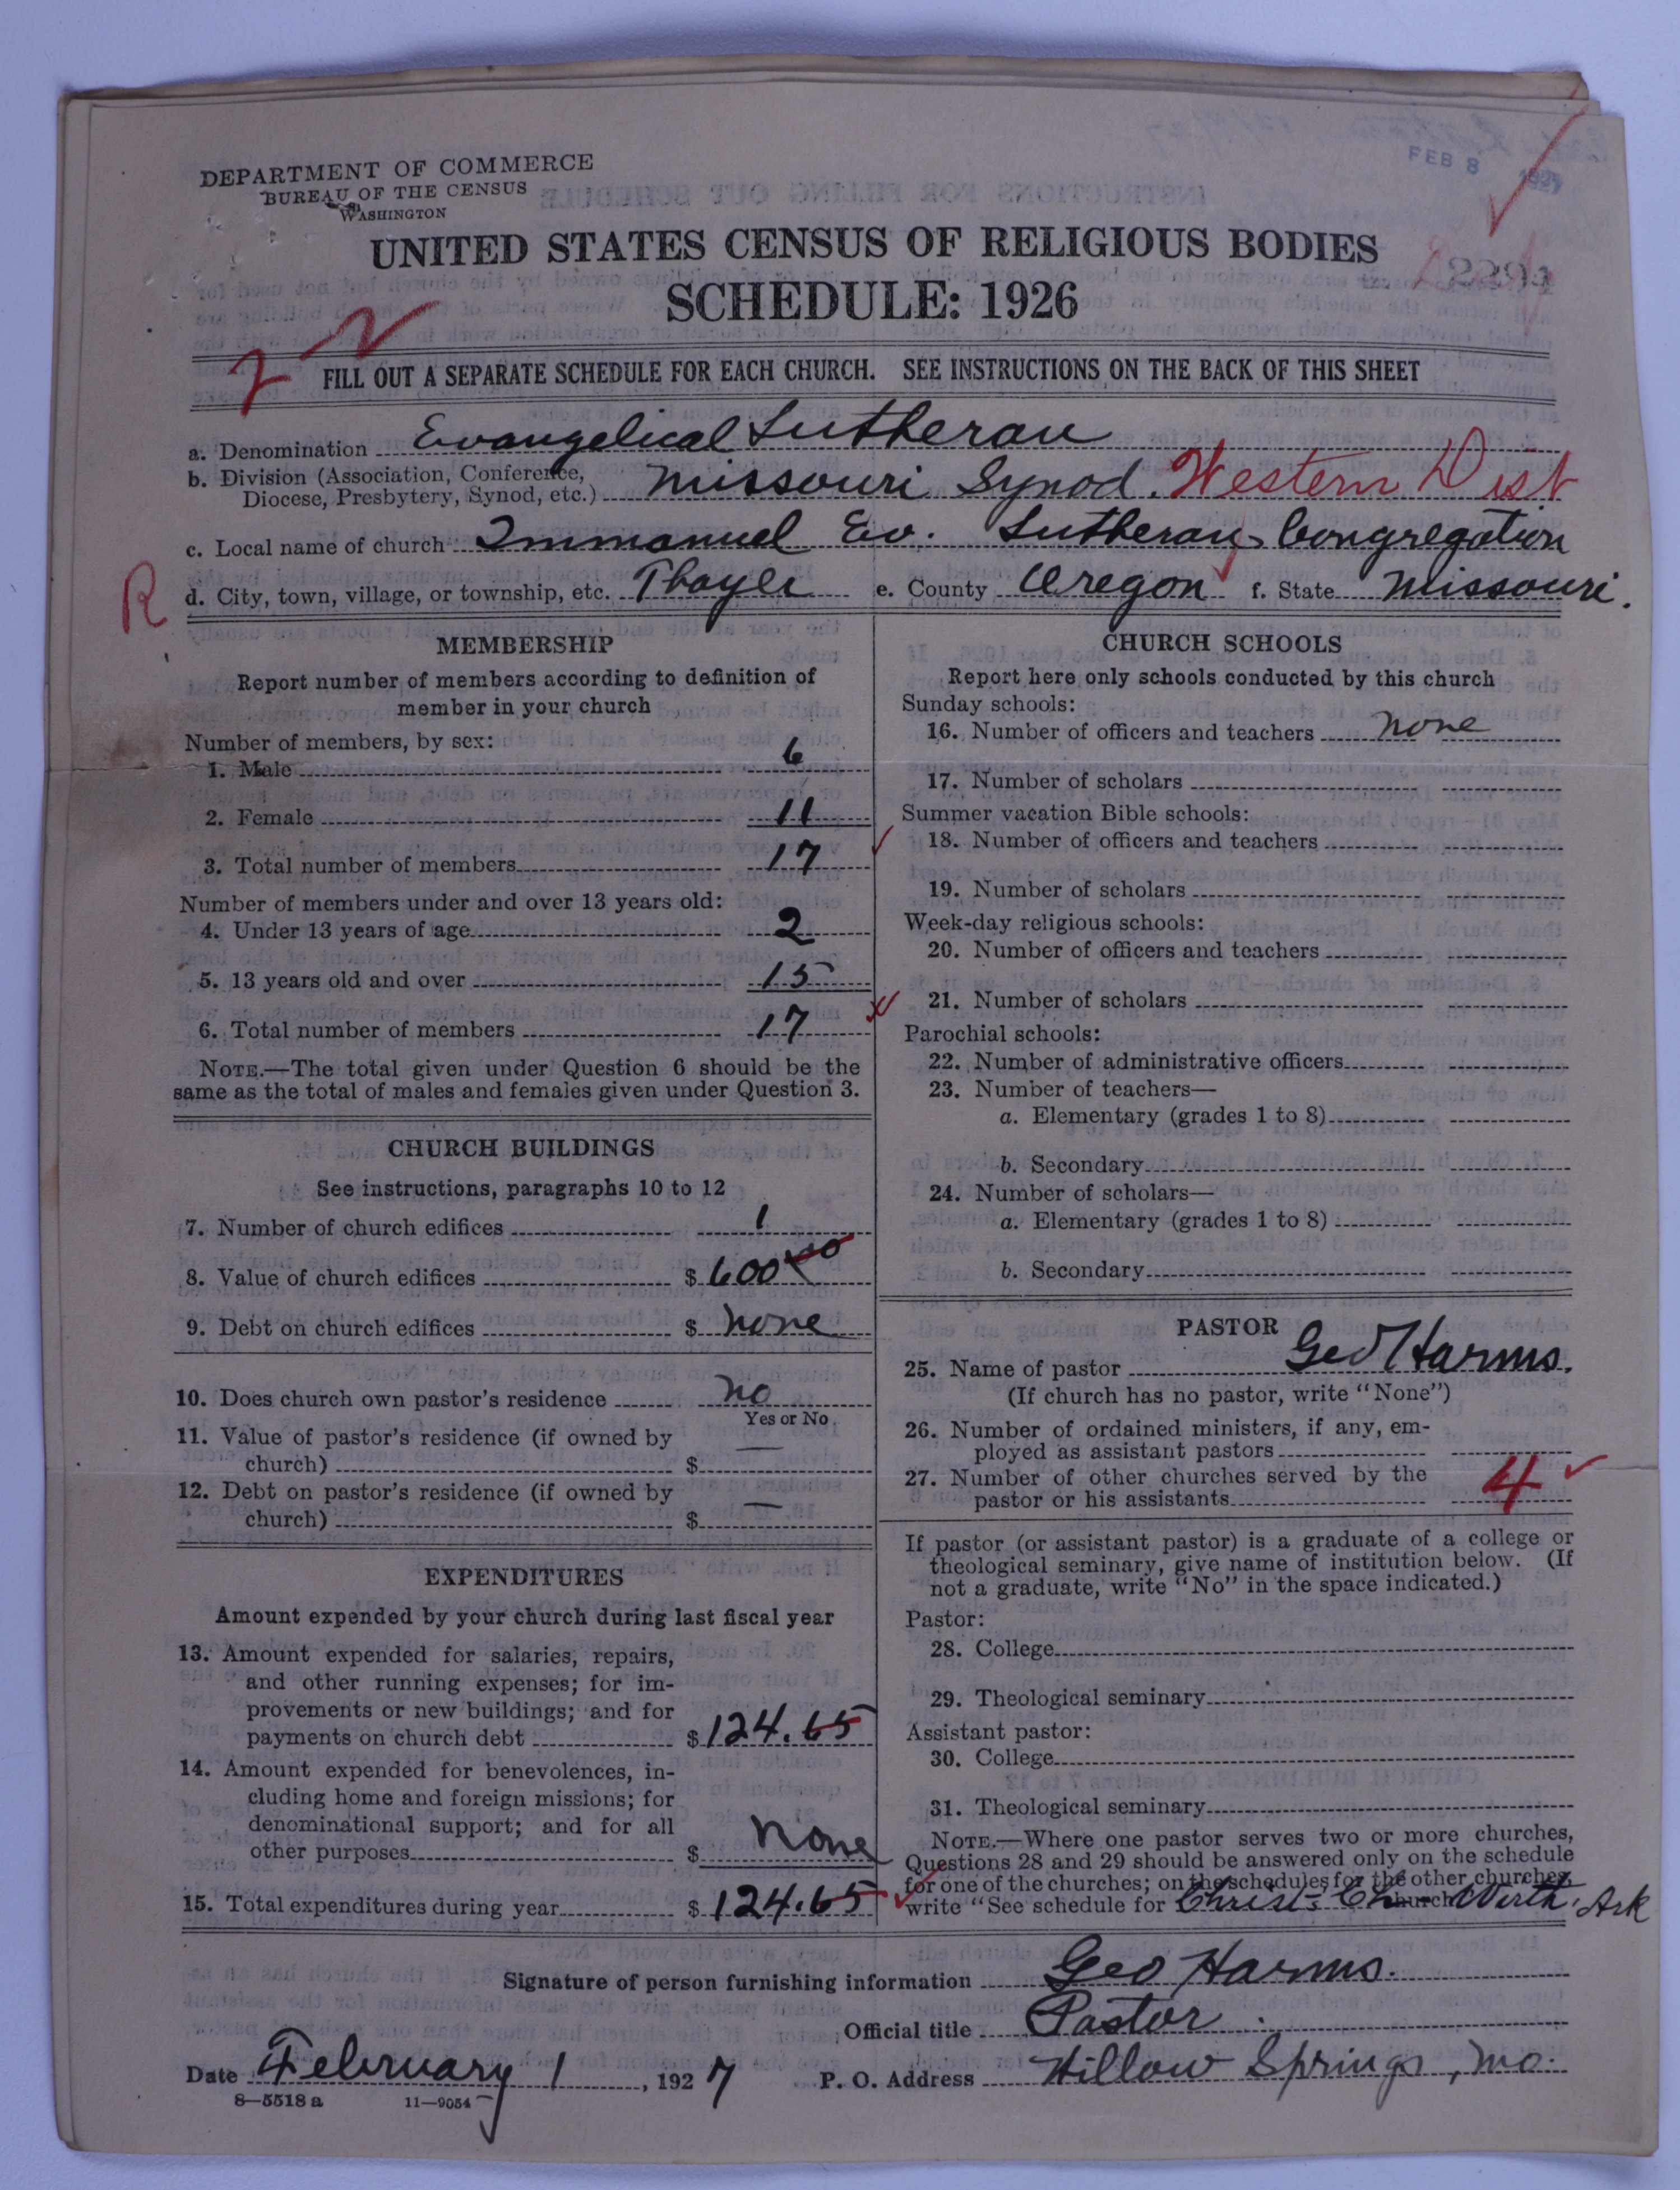 DEPARTMENT OF COMMERCE
BUREAU OF THE CENSUS
WASHINGTON
FEB 8 1927
UNITED STATES CENSUS OF RELIGIOUS BODIES
SCHEDULE: 1926
FILL OUT A SEPARATE SCHEDULE FOR EACH CHURCH. SEE INSTRUCTIONS ON THE BACK OF THIS SHEET
a. Denomination Evangelical Lutheran
b. Division (Association, Conference,
Diocese, Presbytery, Synod, etc.) Missouri Synod. Western Dist
c. Local name of church Immanuel Ev. Lutheran Congregation
R
d. City, town, village, or township, etc. Thayer e. County Oregon f. State Missouri.
MEMBERSHIP
Report number of members according to definition of
member in your church
Number of members, by sex:
1. Male 6
2. Female 11
3. Total number of members 17
Number of members under and over 13 years old:
4. Under 13 years of age 2
5. 13 years old and over 15
6. Total number of members 17
NOTE.—The total given under Question 6 should be the
same as the total of males and females given under Question 3.
CHURCH BUILDINGS
See instructions, paragraphs 10 to 12
7. Number of church edifices 1
8. Value of church edifices $ 600
9. Debt on church edifices $ None
10. Does church own pastor's residence No
Yes or No
11. Value of pastor's residence (if owned by
church) $ —
12. Debt on pastor's residence (if owned by
church) $ —
EXPENDITURES
Amount expended by your church during last fiscal year
13. Amount expended for salaries, repairs,
and other running expenses; for im-
provements or new buildings; and for
payments on church debt $ 124.65
14. Amount expended for benevolences, in-
cluding home and foreign missions; for
denominational support; and for all
other purposes $ None
15. Total expenditures during year $ 124.65
CHURCH SCHOOLS
Report here only schools conducted by this church
Sunday schools:
16. Number of officers and teachers None
17. Number of scholars
Summer vacation Bible schools:
18. Number of officers and teachers
19. Number of scholars
Week-day religious schools:
20. Number of officers and teachers
21. Number of scholars
Parochial schools:
22. Number of administrative officers
23. Number of teachers—
a. Elementary (grades 1 to 8)
b. Secondary
24. Number of scholars—
a. Elementary (grades 1 to 8)
b. Secondary
PASTOR
25. Name of pastor Geo Harms.
(If church has no pastor, write "None")
26. Number of ordained ministers, if any, em-
ployed as assistant pastors
27. Number of other churches served by the
pastor or his assistants 4
If pastor (or assistant pastor) is a graduate of a college or
theological seminary, give name of institution below. (If
not a graduate, write "No" in the space indicated.)
Pastor:
28. College
29. Theological seminary
Assistant pastor:
30. College
31. Theological seminary
NOTE.—Where one pastor serves two or more churches,
Questions 28 and 29 should be answered only on the schedule
for one of the churches; on the schedules for the other churches,
write "See schedule for Christ Ch church Wirth, Ark
Signature of person furnishing information Geo Harms.
Official title Pastor
Date February 1, 1927 P. O. Address Willow Springs, Mo.
8—5518 a 11—9054